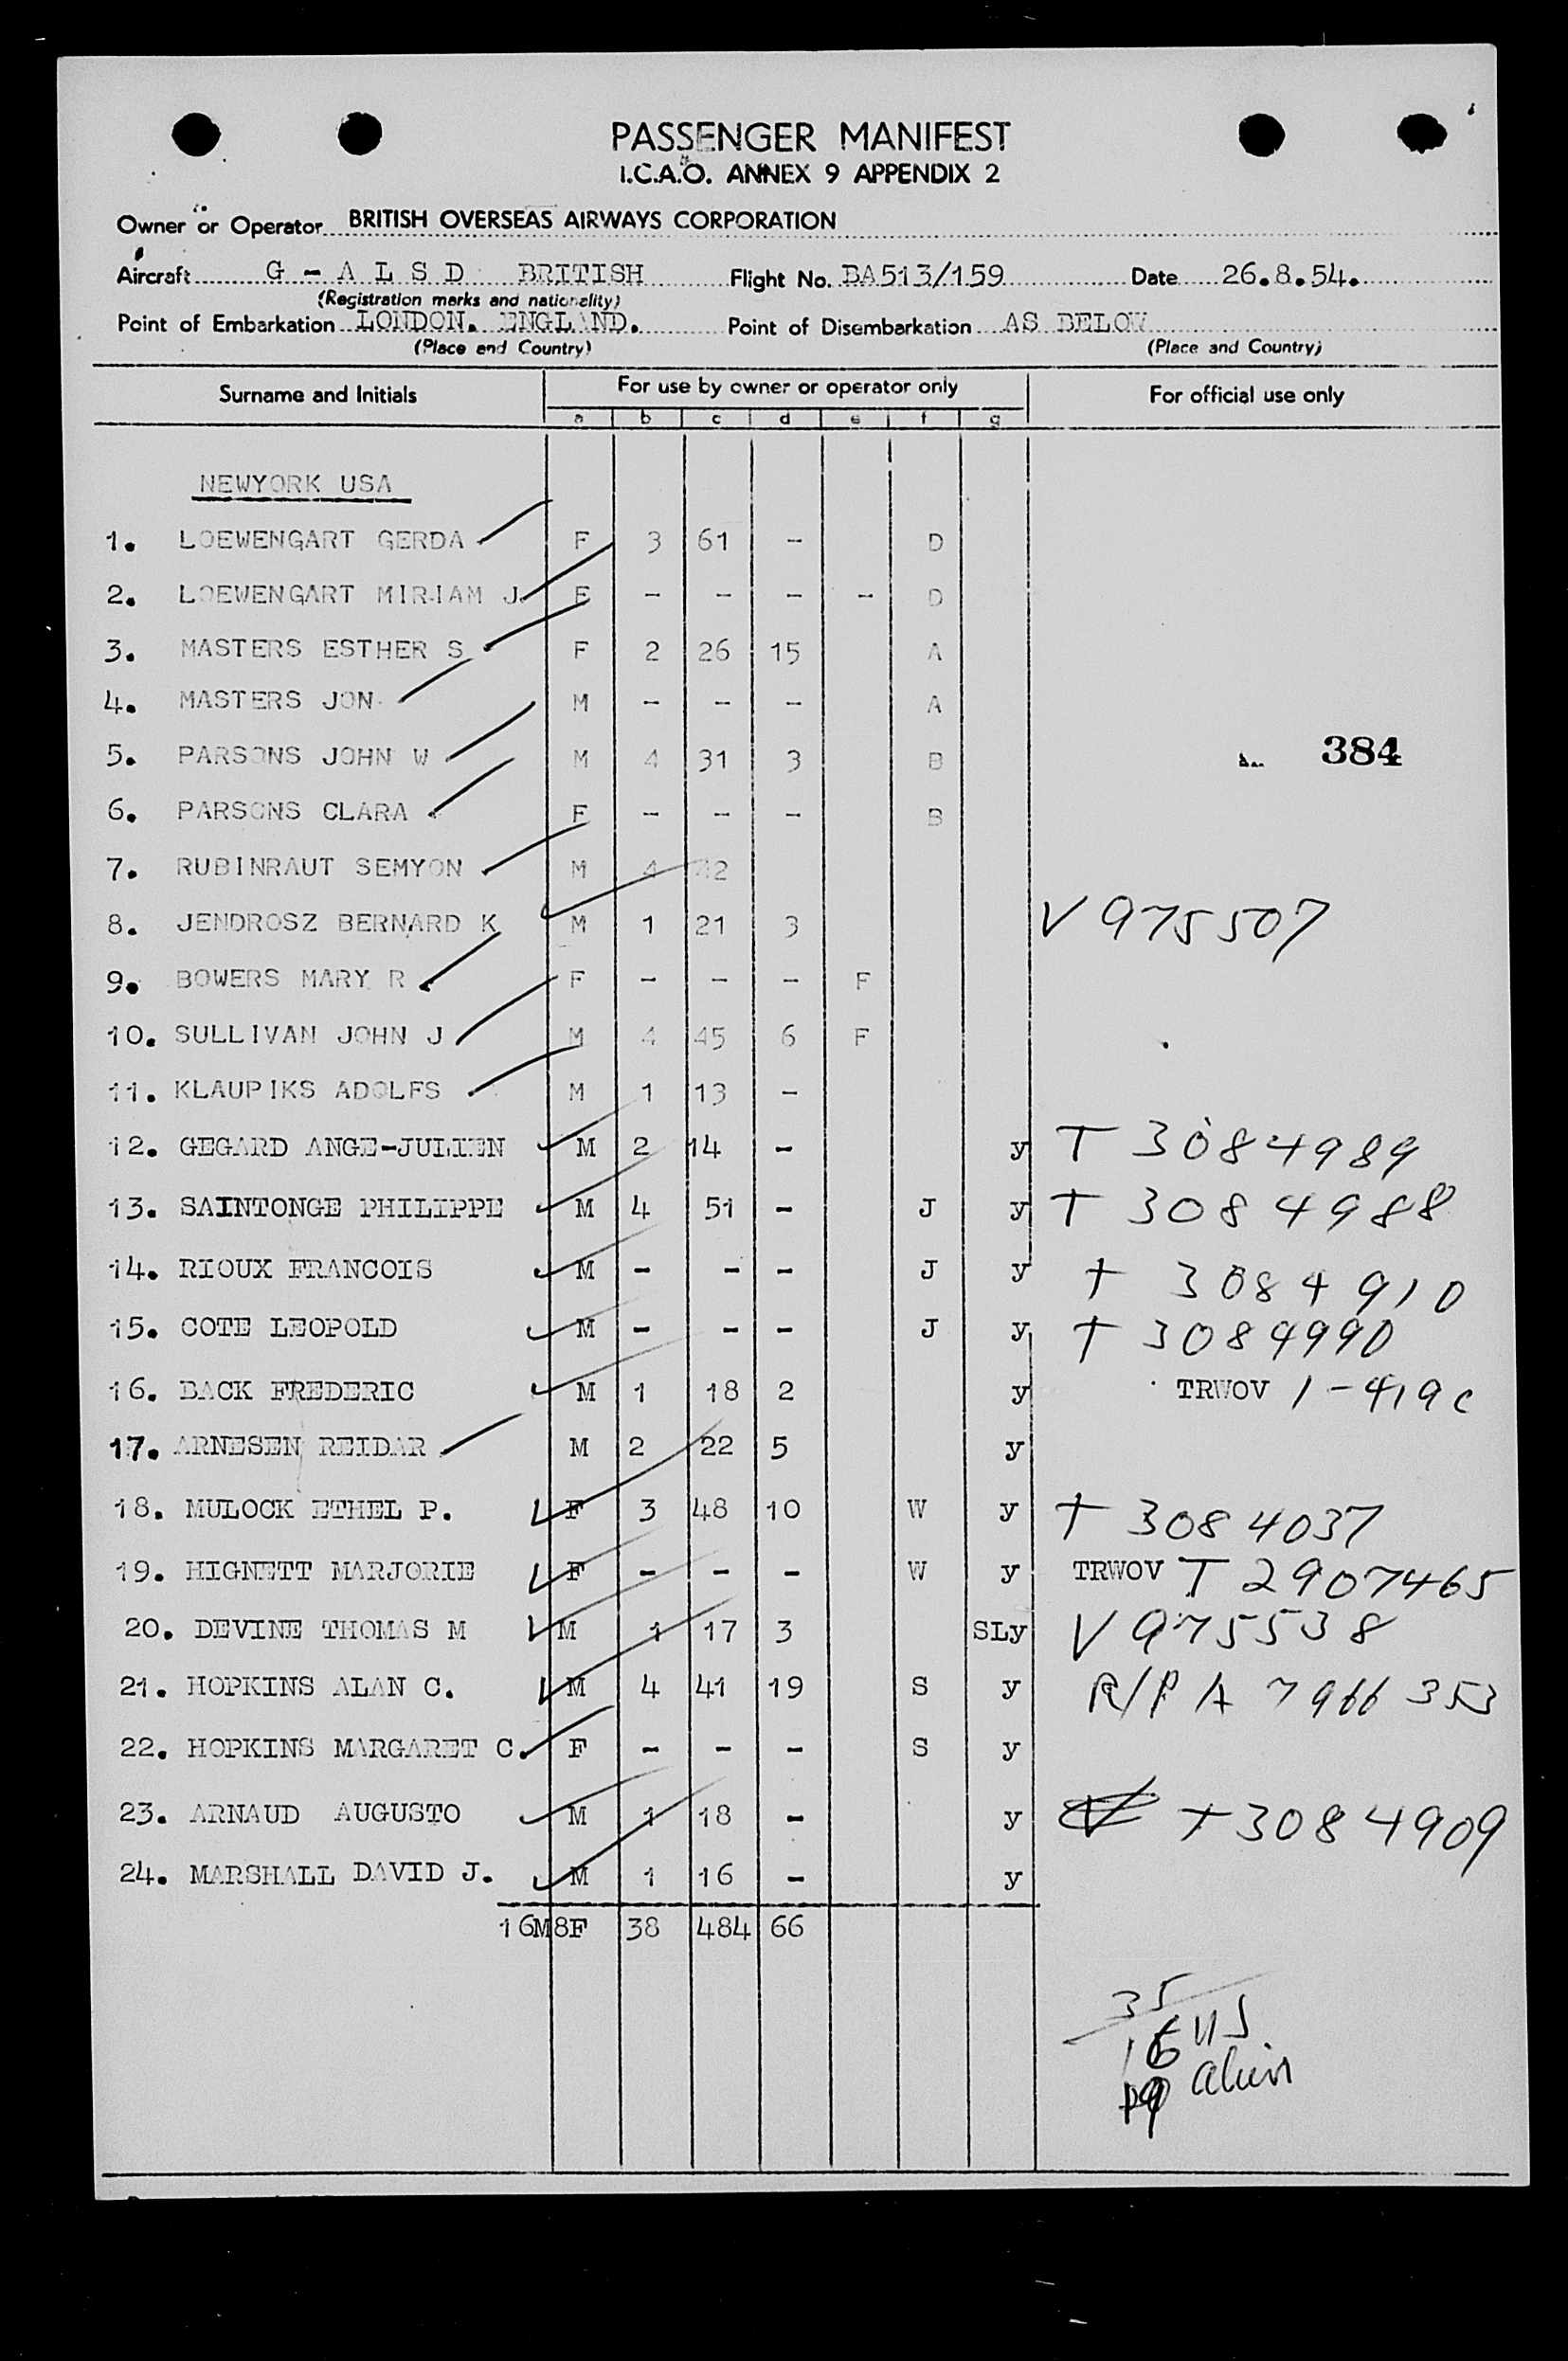 PASSENGER MANIFEST
I.C.A.O. ANNEX 9 APPENDIX 2
Owner or Operator BRITISH OVERSEAS AIRWAYS CORPORATION
Aircraft G - A L S D BRITISH Flight No. BA513/159 Date 26.8.54.
(Registration marks and nationality)
Point of Embarkation LONDON. ENGLAND. Point of Disembarkation AS BELOW
(Place and Country) (Place and Country)
Surname and Initials For use by owner or operator only For official use only
a b c d e f g
NEWYORK USA
1. LOEWENGART GERDA F 3 61 - D
2. LOEWENGART MIRIAM J F - - - - D
3. MASTERS ESTHER S F 2 26 15 A
4. MASTERS JON M - - - A
5. PARSONS JOHN W M 4 31 3 B 384
6. PARSONS CLARA F - - - B
7. RUBINRAUT SEMYON M 4 42
8. JENDROSZ BERNARD K M 1 21 3 V 975507
9. BOWERS MARY R F - - - F
10. SULLIVAN JOHN J M 4 45 6 F
11. KLAUPIKS ADOLFS M 1 13 -
12. GEGARD ANGE-JULIEN M 2 14 - y T 3084989
13. SAINTONGE PHILIPPE M 4 51 - J y T 3084988
14. RIOUX FRANCOIS M - - - J y T 3084910
15. COTE LEOPOLD M - - - J y T 3084990
16. BACK FREDERIC M 1 18 2 y TRWOV 1-419c
17. ARNESEN REIDAR M 2 22 5 y
18. MULOCK ETHEL P. F 3 48 10 W y T 3084037
19. HIGNETT MARJORIE F - - - W y TRWOV T 2907465
20. DEVINE THOMAS M M 1 17 3 SLy V 975538
21. HOPKINS ALAN C. M 4 41 19 S y R/P A 7966353
22. HOPKINS MARGARET C. F - - - S y
23. ARNAUD AUGUSTO M 1 18 - y T3084909
24. MARSHALL DAVID J. M 1 16 - y
16M8F 38 484 66
35
16 US
alien